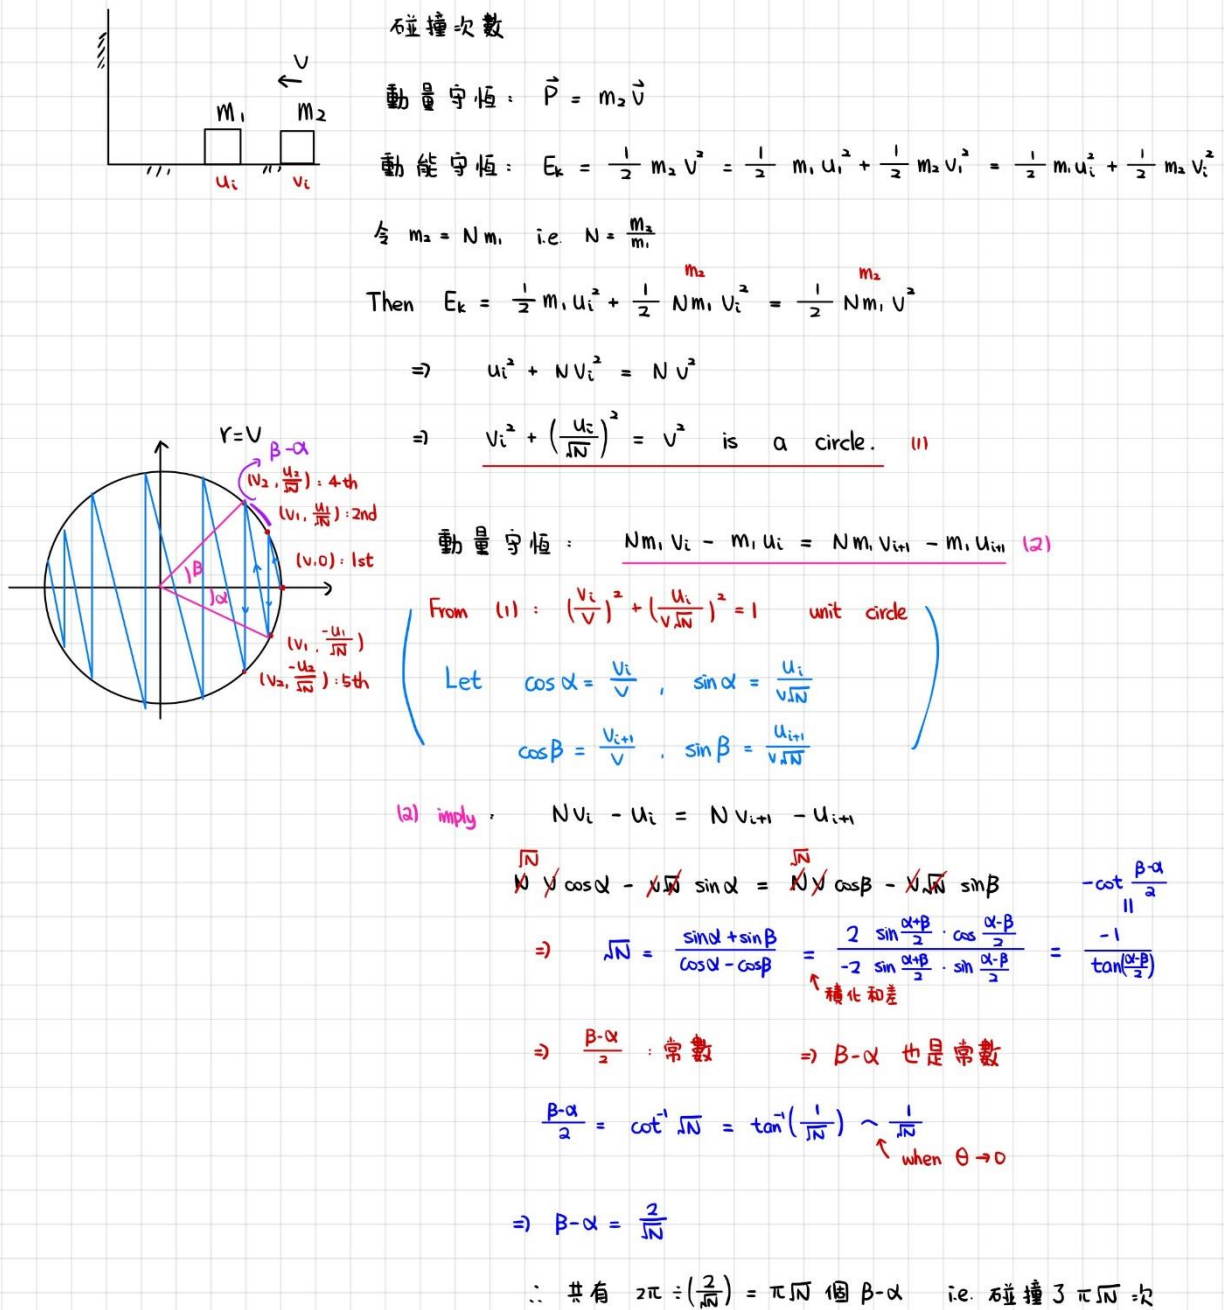 碰撞次數
V
m₁ m₂
uᵢ vᵢ
動量守恆： P⃗ = m₂v⃗
動能守恆： Eₖ = 1/2 m₂V² = 1/2 m₁u₁² + 1/2 m₂V₁² = 1/2 m₁uᵢ² + 1/2 m₂Vᵢ²
令 m₂ = Nm₁ i.e. N = m₂/m₁
m₂ m₂
Then Eₖ = 1/2 m₁uᵢ² + 1/2 Nm₁Vᵢ² = 1/2 Nm₁V²
⇒ uᵢ² + NVᵢ² = NV²
⇒ Vᵢ² + (uᵢ/√N)² = V² is a circle. (1)
r=V
β-α
(V₂, u₂/√N) : 4th
(V₁, u₁/√N) : 2nd
(V,0) : 1st
β
α
(V₁, -u₁/√N)
(V₂, -u₂/√N) : 5th
動量守恆： Nm₁Vᵢ - m₁uᵢ = Nm₁Vᵢ₊₁ - m₁uᵢ₊₁ (2)
From (1) : (Vᵢ/V)² + (uᵢ/V√N)² = 1 unit circle
Let cosα = Vᵢ/V , sinα = uᵢ/V√N
cosβ = Vᵢ₊₁/V , sinβ = uᵢ₊₁/V√N
(2) imply : NVᵢ - uᵢ = NVᵢ₊₁ - uᵢ₊₁
√N √N
N V cosα - V√N sinα = N V cosβ - V√N sinβ
-cot (β-α)/2
=
⇒ √N = (sinα + sinβ)/(cosα - cosβ) = (2 sin (α+β)/2 · cos (α-β)/2)/(-2 sin (α+β)/2 · sin (α-β)/2) = -1/tan((α-β)/2)
↑ 積化和差
⇒ (β-α)/2 : 常數 ⇒ β-α 也是常數
(β-α)/2 = cot⁻¹√N = tan⁻¹(1/√N) ~ 1/√N
↑ when θ→0
⇒ β-α = 2/√N
∴ 共有 2π ÷ (2/√N) = π√N 個 β-α i.e. 碰撞了 π√N 次